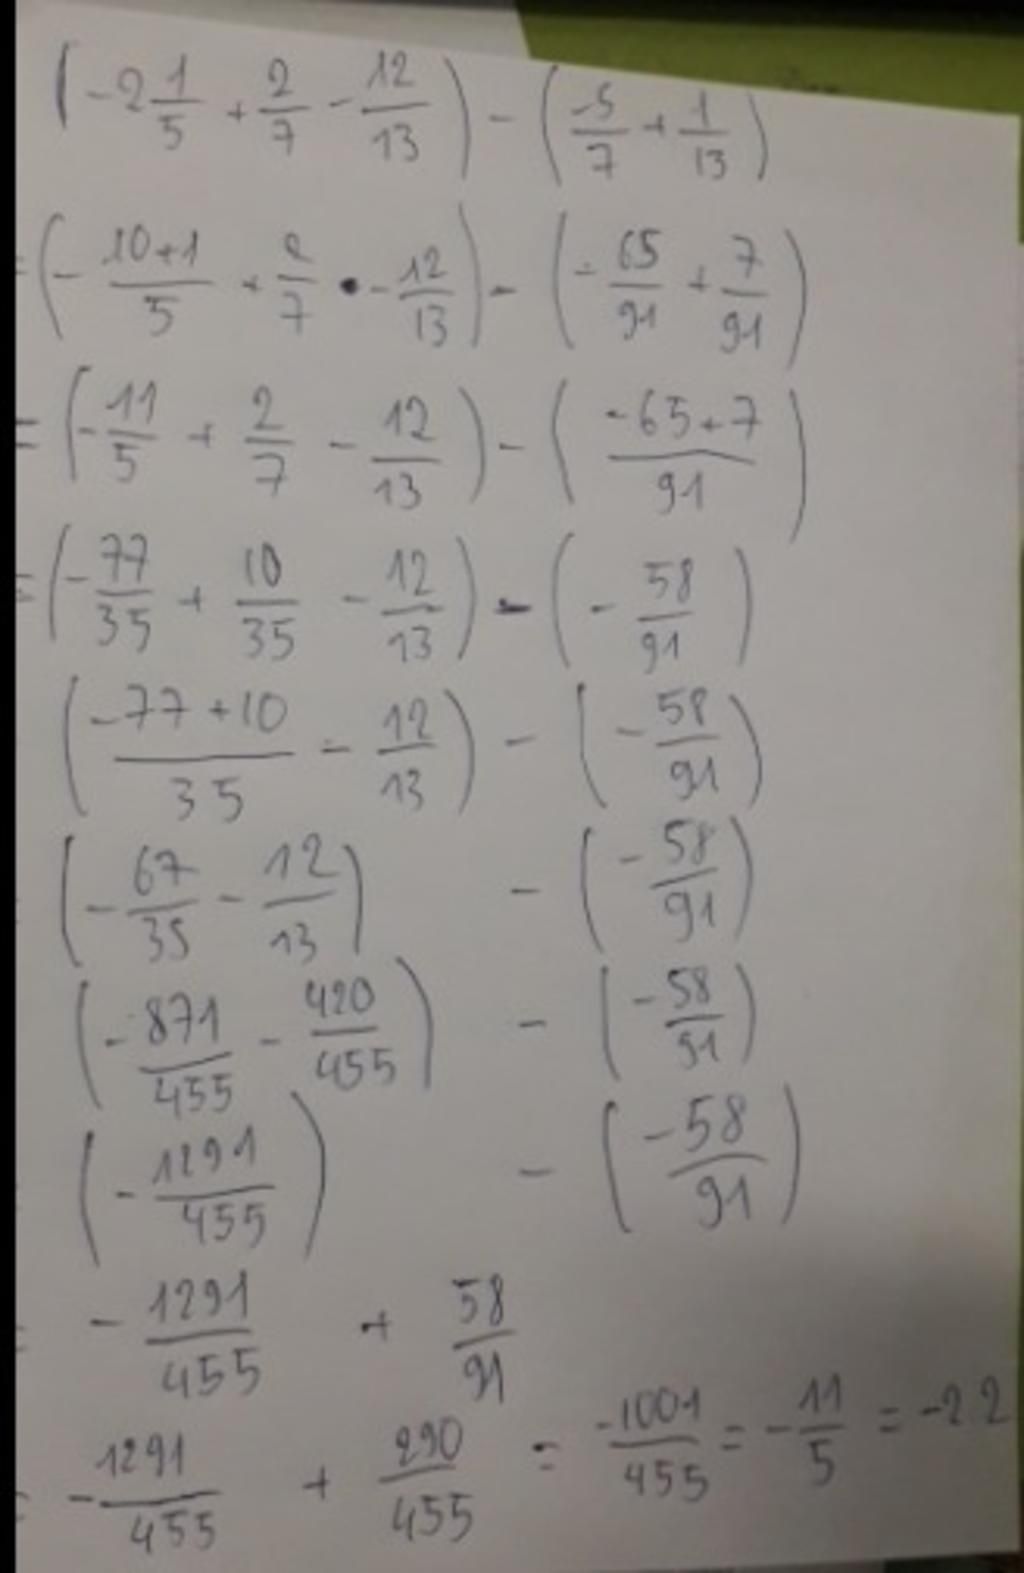 (-2 1/5 + 2/7 - 12/13) - (-5/7 + 1/13)
= (- 10+1/5 + 2/7 • - 12/13) - (- 65/91 + 7/91)
= (- 11/5 + 2/7 - 12/13) - (-65+7/91)
= (- 77/35 + 10/35 - 12/13) - (- 58/91)
(-77+10/35 - 12/13) - (- 58/91)
(- 67/35 - 12/13) - (- 58/91)
(- 871/455 - 420/455) - (- 58/91)
(- 1291/455) - (-58/91)
= - 1291/455 + 58/91
= - 1291/455 + 290/455 = -1001/455 = - 11/5 = -2 2